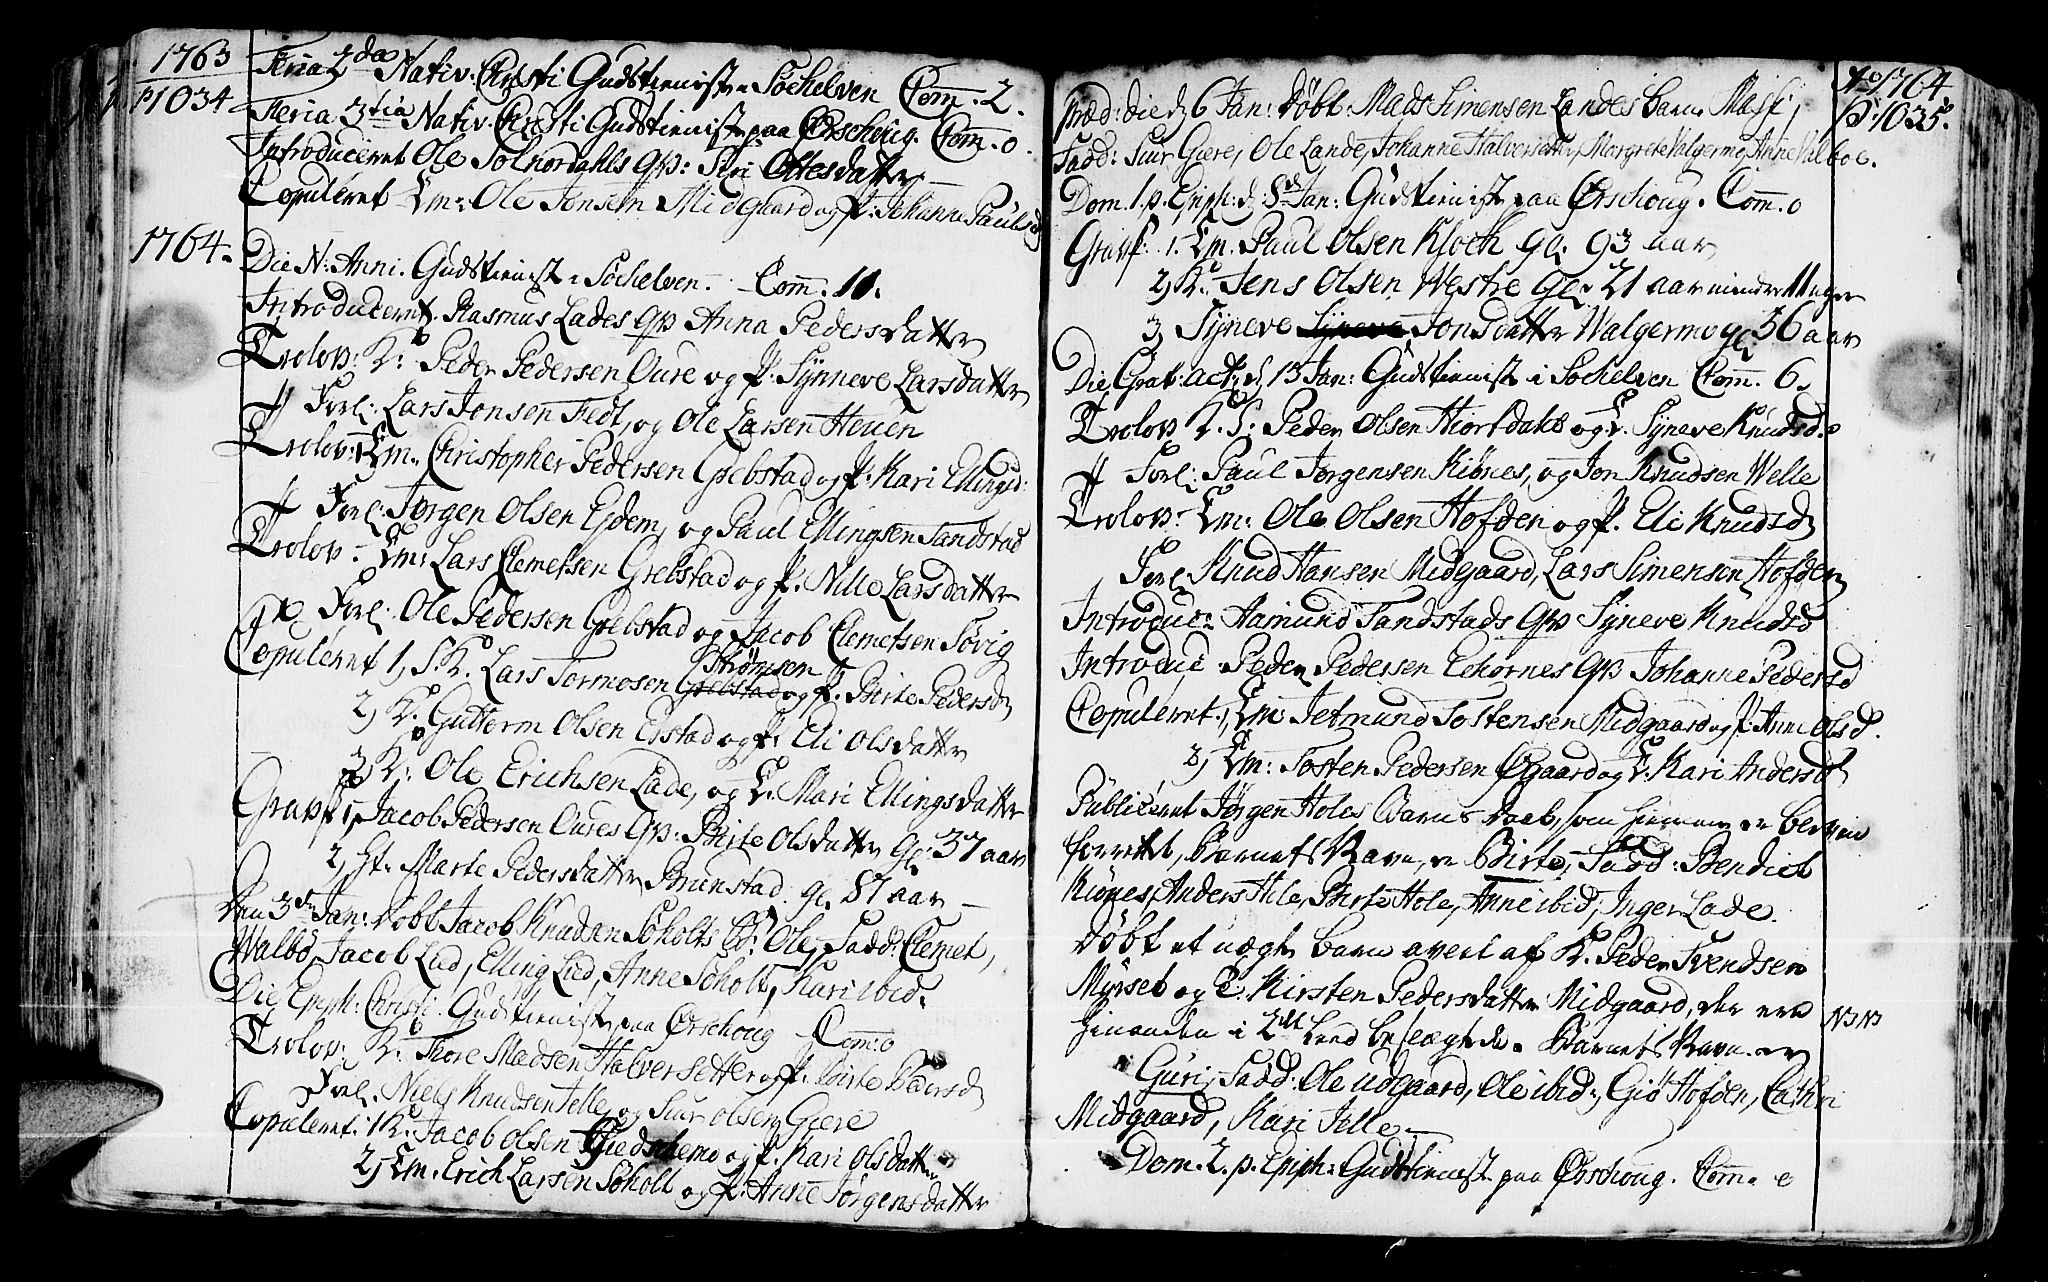 1763
p 1034
Feria 2da Nativ. Christi Gudstienist i Sochelven Com. 2.
Feria 3tia Nativ. Christi Gudstieniste paa Ørschoug. Com. 0.
Introduceret Ole Solnordahls Qv: Siri Olesdatter
Copuleret Em: Ole Jonsen Midgaard og P. Johanne Paulsd
1764.
Die N. Anni. Gudstienist i Sochelven. Com. 11.
Introduceret. Rasmus Lades Qv Anna Pedersdatter
Trolov: K: Peder Pedersen Oure og P. Synneve Larsdatter
Forl: Lars Jonsen Fedt, og Ole Larsen Heuen
Trolov: Em: Christopher Pedersen Grebstad og P. Kari Ellingsd:
Forl: Jørgen Olsen Eidem, og Paul Ellingsen Tandstad
Trolov: Em: Lars Clemetsen Grebstad og P. Nille Larsdatter
Forl: Ole Pedersen Grebstad og Jacob Clemetsen Søvig
Strømsen
Copuleret 1, S.K. Lars Tormosen Grebstad og P. Birte Pedersd
2, K. Guttorm Olsen Erstad og P. Eli Olsdatter
3, K: Ole Erichsen Lade, og E. Mari Ellingsdatter
Gravf 1, Jacob Pedersen Oures Qv: Birte Olsdatter gl: 37 aar
2, Marte Pedersdatter Brunstad gl. 87 aar
Den 3de Jan: Døbt Jacob Knudsen Søholts B: Ole, Fadd: Clemet,
Walbø, Jacob Lid, Elling Lid, Anne Søholt, Kari ibid.
Die Epiph: Christi. Gudstieniste paa Ørschoug Com: 0
Trolov: K: Thore Madsen Halversetter og P. Birte Baarsd
Forl. Niels Knudsen Telle og Siur Olsen Giære
Copuleret: 1 K: Jacob Olsen Giedschemo og P. Kari Olsdatter
2, Em. Erich Larsen Søholt og P. Anne Jørgensdatter
Ao 1764
p: 1035.
præd: die d 6 Jan: Døbt Mads Simensen Landes Barn Mast,
Fadd: Siur Giære, Ole Lande, Johanne Halversetter, Margrete Valgermo, Anne Valboe.
Dom. 1. p. Epiph: d 8de Jan: Gudstienist paa Ørschoug. Com. 0
Gravf: 1. Em. Paul Olsen Kloch gl. 93 aar
2, K: Jens Olsen Westre gl. 21 aar mindre 11 uger
3, Syneve Jonsdatter Walgermo gl 56 aar
Die Grat: act: d 13 Jan: Gudstienist i Sochelven Com. 6.
Trolov K. S: Peder Olsen Hiortdahl og E. Syneve Knudsd.
Forl: Paul Jørgensen Kiønes, og Jon Knudsen Welle
Trolov: Em: Ole Olsen Hofden og P. Eli Knudsd
Forl Knud Hansen Midgaard, Lars Simensen Hofden
Introduc: Aamund Tandstads Qv Syneve Knudsd
Introduc: Peder Pedersen Echornes Qv Johanne Pedersd
Copuleret 1, Em Jetmund Tostensen Midgaard og P. Anne Olsd.
2, Em: Tosten Pedersen Øgaard og E. Kari Andersd
Publiceret Jørgen Holes Barns Daab, som hiemme er bleven
forrettet, Barnets Navn er Birte, Fadd: Bendict
Kiønes, Anders Hole, Birte Hole, Anne ibid, Inger Lade.
Døbt et uægte Barn avlet af K. Peder Svendsen
Mørset og P. Kirsten Pedersdatter Midgaard, der ere
hinanden i 2det Leed besleægtede. Barnets Navn er
NB NB
Guri, Fadd: Ole Udgaard, Ole ibid:, Giø Hofden, Cathri
Midgaard, Kari Telle
Dom. 2. p. Epiph: Gudstienist paa Ørschoug. Com. 0